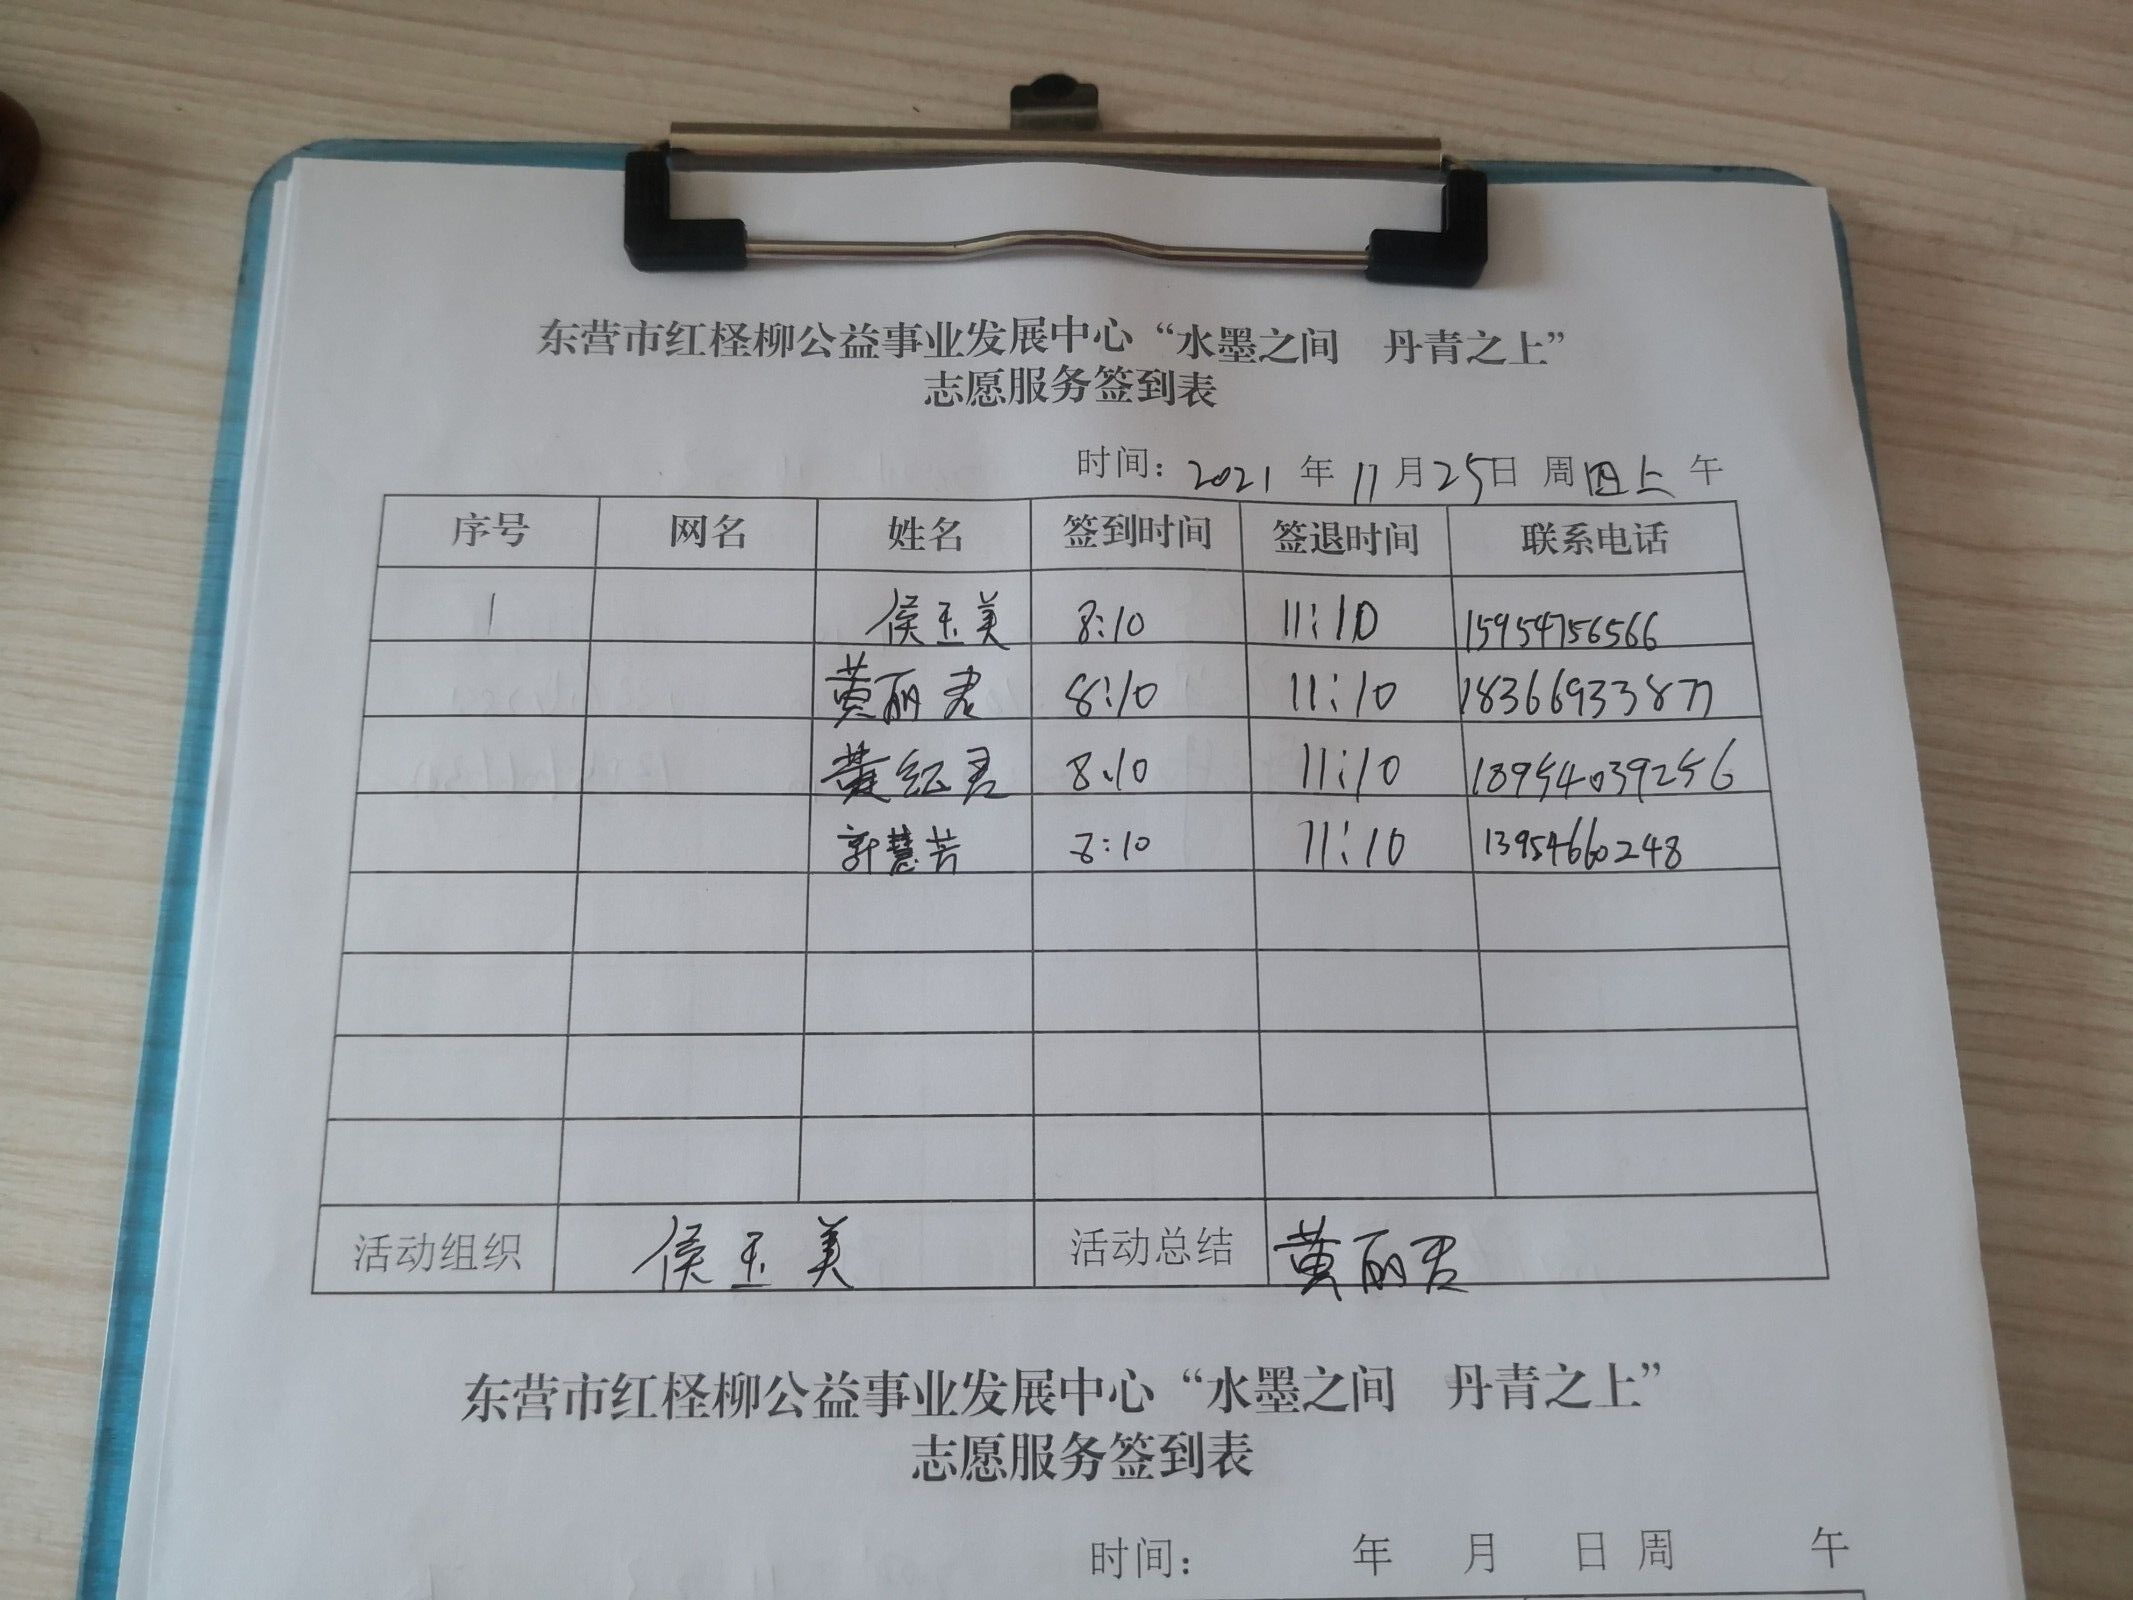 东营市红柽柳公益事业发展中心“水墨之间 丹青之上”
志愿服务签到表
时间：2021 年 11 月 25 日 周 四上 午
序号 网名 姓名 签到时间 签退时间 联系电话
1 侯玉美 8:10 11:10 15954756566
黄丽君 8:10 11:10 18366933877
黄红君 8:10 11:10 18954039256
郭慧芳 8:10 11:10 13954660248
活动组织 侯玉美 活动总结 黄丽君
东营市红柽柳公益事业发展中心“水墨之间 丹青之上”
志愿服务签到表
时间： 年 月 日 周 午